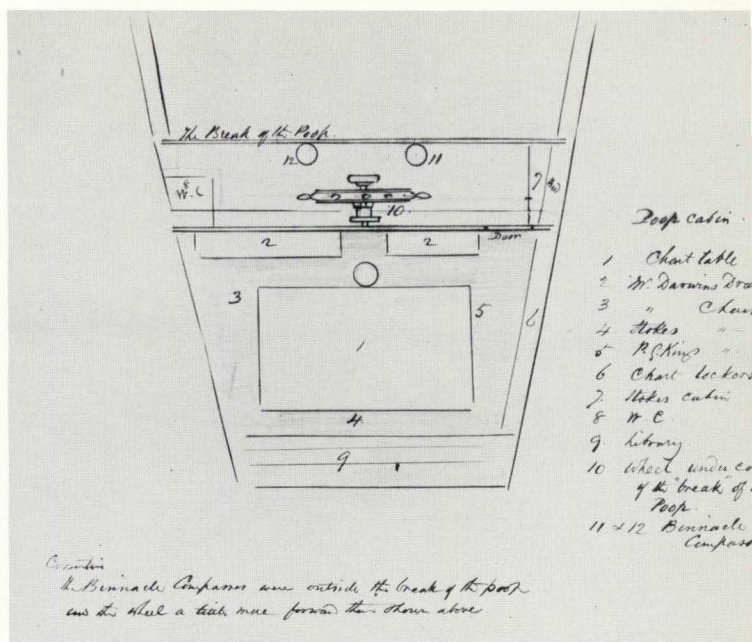 The Break of the Poop.
12
11
8
W.C
7
10.
2
2
Door
3
5
6
1
4
9
Poop cabin.
1 Chart table
2 Mr. Darwins
3 " 
4 Stokes "
5 P.G. Kings "
6 Chart lockers
7. Stokes cabin
8 W.C.
9. Library
10 Wheel under
of the "break" of
Poop.
11 & 12 Binnacle
The Binnacle Compasses were outside the break of the poop
and the wheel a little more forward than shown above.